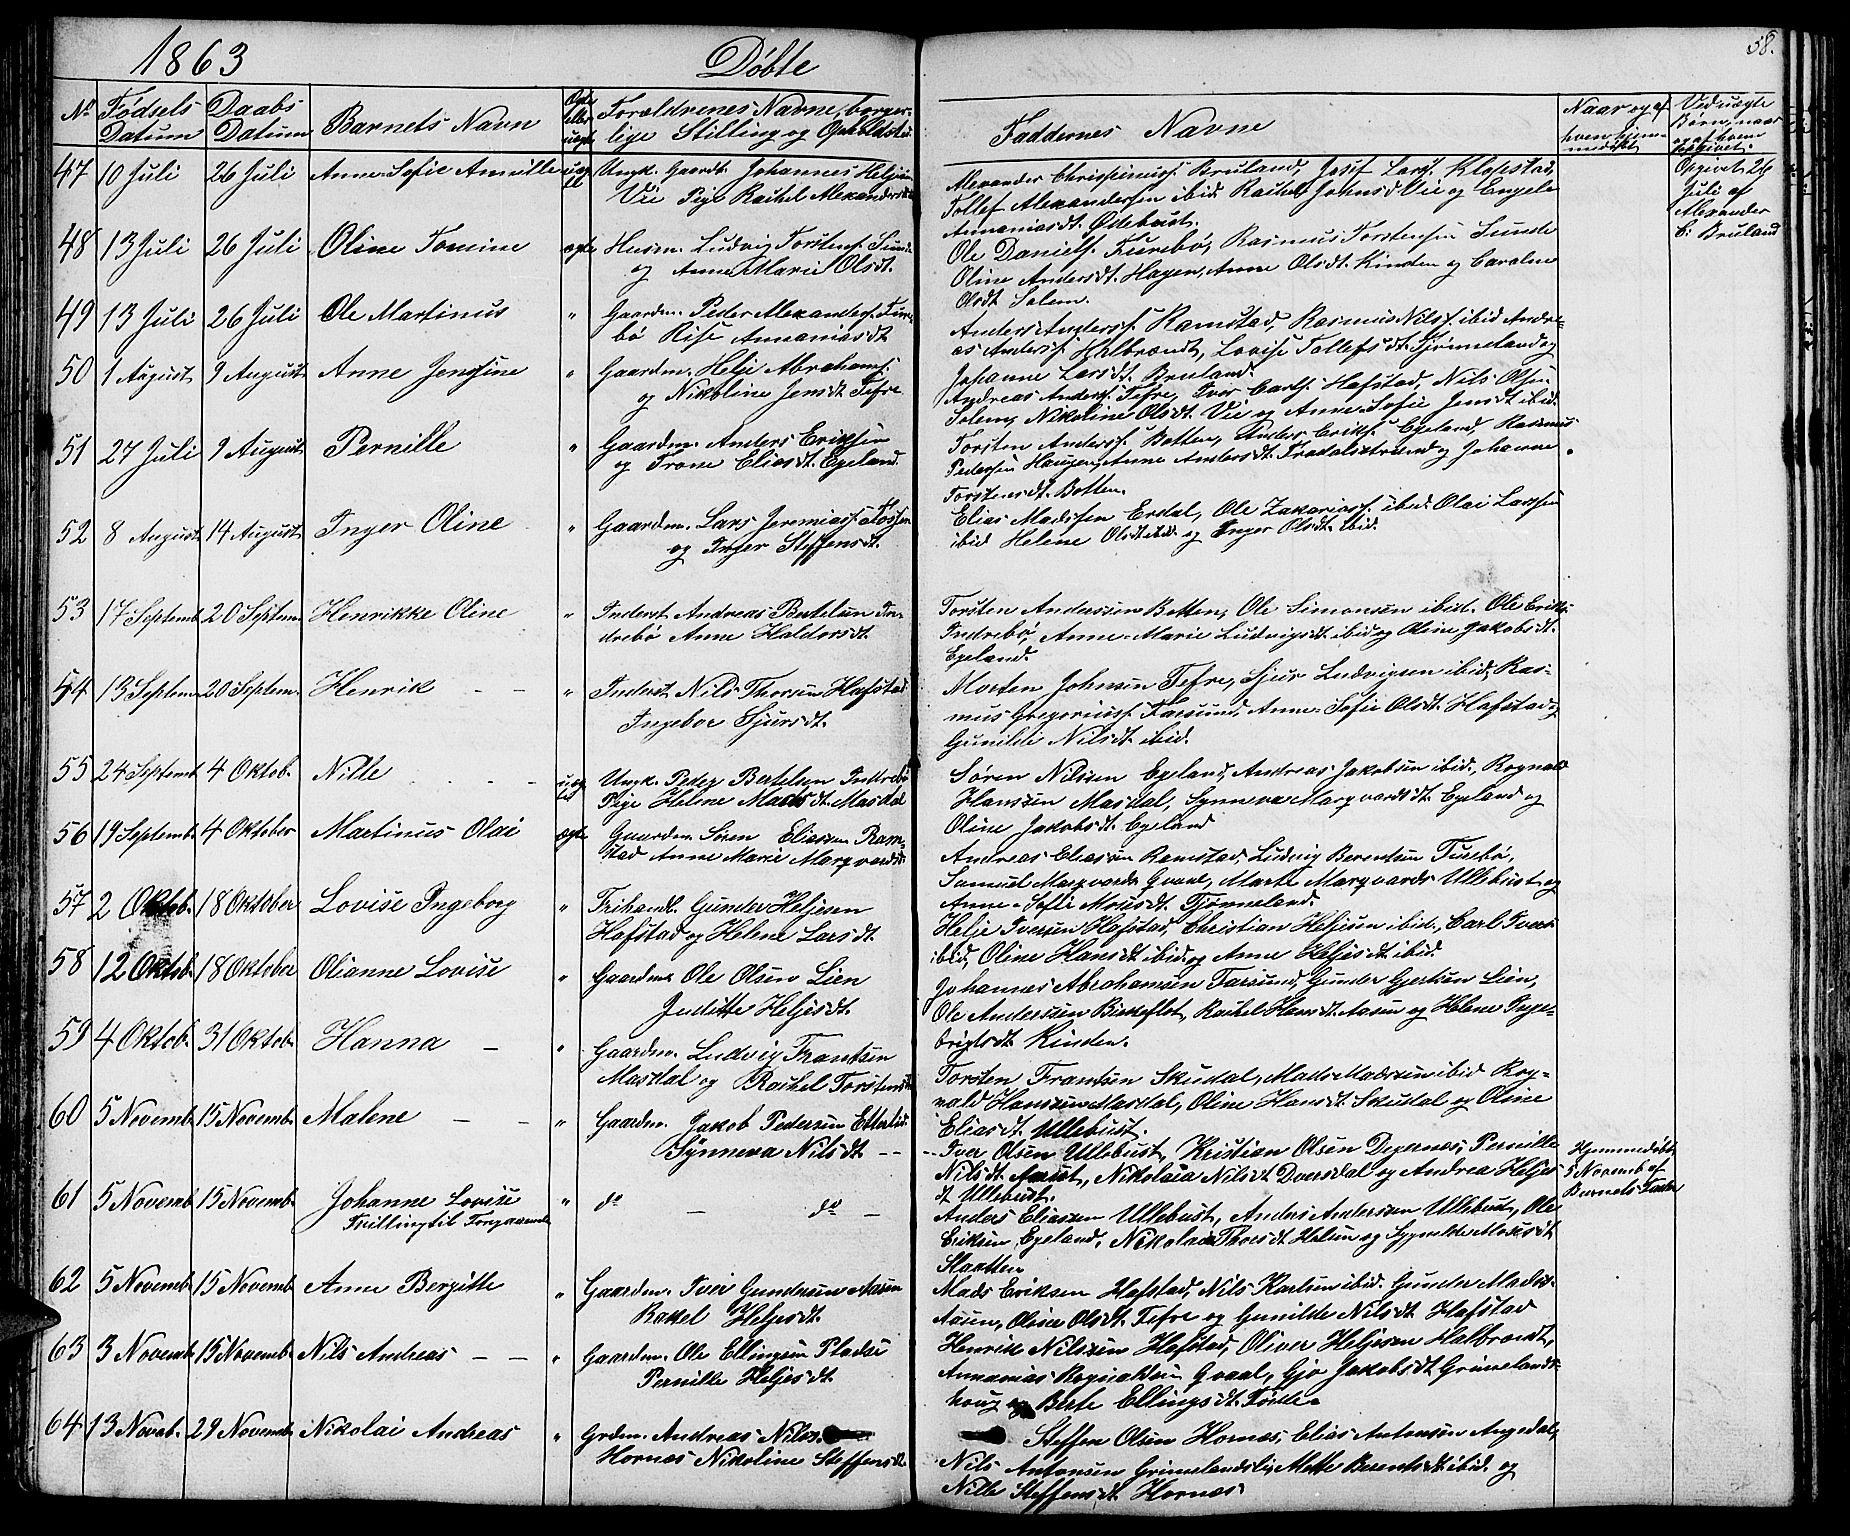 1863 Døbte
58.
No Fødsels Datum Daabs Datum Barnets Navn Ægte eller uægte Forældrenes Navne, borgerlige Stilling og Opholdsted
Faddernes Navne
Naar og af hvem hjemmedøbt
Ved uægte Børn, naar og af hvem opgivet.
47 10 Juli 26 Juli Anne Sofie Amille uægte Ungk. Gaardt. Johannes Heljesen
Vie Pige Rachel Alexandersdt
Alexander Chrispiniussf. Bruland, Josef Larsf. Klopstad,
Tollef Alexandersen ibid. Rachel Johnsdt Vie og Engele
Annaniasdt. Øttebust.
Opgivet 26
Juli af
Alexander
C. Bruland
48 13 Juli 26 Juli Oline Tomine ægte Husm. Ludvig Torstensf. Sunde
og Anne Marie Olsdt.
Ole Danielsf. Furebø, Rasmus Torstensen Sunde
Oline Andersdt. Hagen, Anne Olsdt. Kinden og Caroline
Olsdt Solem.
49 13 Juli 26 Juli Ole Martinus " Gaardm. Peder Alexandersf. Fure-
bø Rise Annaniasdt
Anders Andersf. Ramstad, Rasmus Nilsf. ibid Andre-
as Andersf. Halbrendt, Lovise Tollefsdt. Tjønneland og
Johanne Larsdt. Bruland.
50 1 August 9 August Anne Jensine " Gaardm. Helje Abrahamsf.
og Nikoline Jensdt Tefre
Andreas Andersf. Tefre, Iver Carlsf. Hafstad, Nils Olsen
Solem, Nikoline Olsdt. Vie og Anne Sofie Jensdt ibid.
51 27 Juli 9 August Pernille " Gaardm. Anders Eriksen
og Trone Eliasdt. Egeland.
Torsten Andersf. Botten, Anders Eriksf. Egeland, Rasmus
Pedersen Haugen, Anne Andersdt. Fredalistrand og Johanne
Torstensdt. Botten.
52 8 August 14 August Inger Oline " Gaardm. Lars Jeremiasf. Fossen
og Inger Steffensdt.
Elias Madssen Erdal, Ole Zakariasf. ibid. Olai Larssen
ibid Helene Olsdt ibid. og Inger Olsdt. ibid.
53 17 Septemb 20 Septem. Henrikke Oline " Inderst. Andreas Bertelsen In-
drebø Anne Haldorsdt.
Torsten Anderssen Botten, Ole Simonsen ibid. Ole Eriks.
Indrebø, Anne-Marie Ludvigsdt ibid og Oline Jakobsdt.
Egeland.
54 13 Septem 20 Septem. Henrik - - " Inderst. Nils Thorsen Hafstad
Ingebor Sjursdt.
Morten Johnsen Tefre, Sjur Ludvigsen ibid, Ras-
mus Gregoriusf. Farsund, Anne-Sofie Olsdt. Hafstad og
Gunilde Nilsdt. ibid.
55 24 Septemb 4 Oktob. Nille - - uægte Ungk. Peder Bertelsen Indrebø
Pige Helene Madsdt. Masdal
Søren Nilssen Egeland, Andreas Jakobsen ibid., Rognald
Hanssen Masdal, Synneva Marqvardsdt. Egeland og
Oline Jakobsdt. Egeland
56 19 Septemb 4 Oktober Martinus Olai ægte Gaardm. Søren Eliassen Ram-
stad Anne Marie Marqvardsdt.
Andreas Eliassen Ramstad, Ludvig Berentsen Furebø,
Samuel Marqvards. Qvaal, Marte Marqvards. Ullebust og
Anne-Sofie Mosesdt. Tjønneland.
57 2 Oktob. 18 Oktober Lovise Ingeborg " Frihandl. Gunder Heljesen
Hafstad og Helene Larsdt.
Helje Iversen Hafstad, Christian Heljesen ibid., Carl Ivers.
ibid, Oline Hansdt ibid. og Anne Heljesdt ibid.
58 12 Oktob. 18 Oktober Olianne Lovise " Gaardm. Ole Olsen Lien
Juditte Heljesdt.
Johannes Abrahamsen Farsund, Gunder Gjertsen Lien,
Ole Anderssen Birkeflot, Rachel Hansdt. Aasen og Helene Inge-
brigtsdt. Kinden.
59 4 Oktob. 31 Oktob. Hanna - " Gaardm. Ludvig Frantsen
Masdal og Rachel Torstensdt
Torsten Frantsen Skudal, Mads Madssen ibid Rog-
nald Hanssen Masdal, Oline Hansdt. Skudal og Oline
Eliasdt. Ullebust.
60 5 Novemb 15 Novemb. Malene - - " Gaardm. Jakob Pedersen
Synneva Nilsdt - -
Iver Olsen Ullebust, Kristian Olsen Degernes, Pernille
Nilsdt. Nikolaia Nilsdt Dvergsdal og Andrea Heljes-
dt Ullebust.
Hjemmedøbt
5 Novemb af
Barnets Fader
61 5 Novemb 15 Novemb. Johanne Lovise
Tvilling til Forgaaende
" do - do -
Anders Eliassen Ullebust, Anders Anderssen Ullebust, Ole
Eriksen Egeland, Nikolaia Thoresdt Halsen og Synnelde Mosesdt
Slaatten
62 5 Novemb. 15 Novemb. Anne Bergitte " Gaardm. Iver Gundersen Aasen
Rakel Heljesdt.
Mads Eriksen Hafstad, Nils Karlsen ibid. Gunder Mads.
Aasen, Olina Olsdt. Tefre og Gunilde Nilsdt. Hafstad
63 3 Novemb 15 Novemb. Nils Andreas - - " Gaardm. Ole Ellingsen
Pernille Heljesdt.
Henrik Nilssen Hafstad, Oliver Heljesen Halbrendt,
Annanias Rognaldsen Qvaal, Gjø Jakobsdt. Grimelands-
houg og Berte Ellingsdt. Førde.
64 13 Novemb. 29 Novemb. Nikolai Andreas " Grdm. Andreas Nils.
Hornes Nikoline Steffensdt.
Steffen Olsen Hornes, Elias Antonsen Angedal,
Nils Antonsen Grimelandslie, Mette Berentsdt. ibid. og
Nille Steffensdt. Hornes.